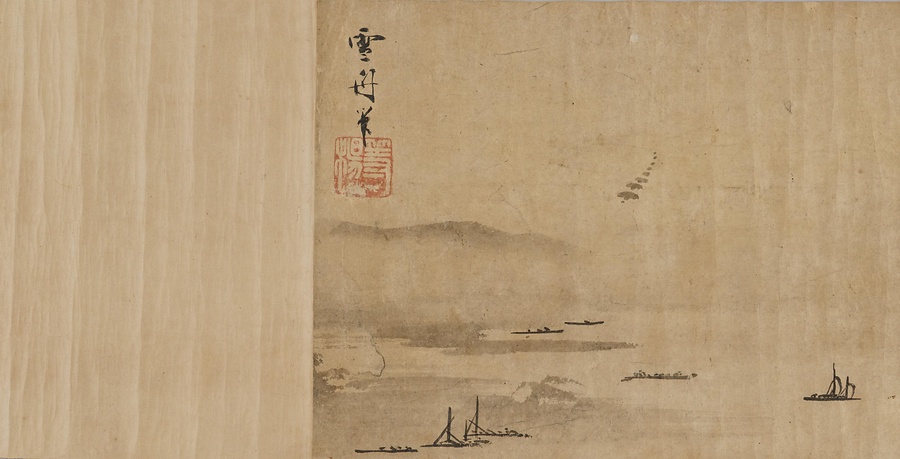 雪舟筆
等楊